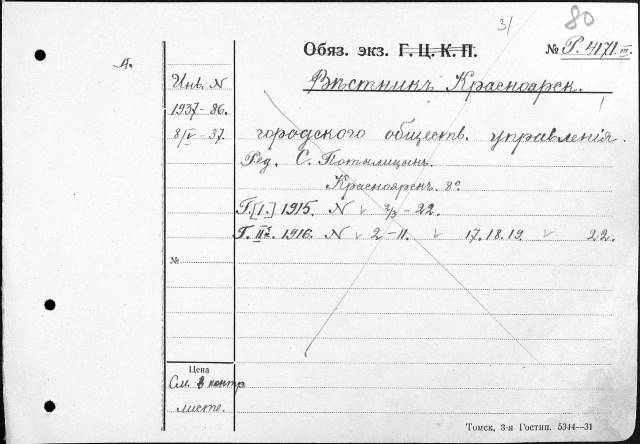 31
80
Обяз. экз. Г.Ц.К.П. № Р. 4171 III
Инв. N
1937-86.
8/V-37.
Вѣстникъ Красноярск.
городского обществ. управленія.
Ред. С. Потылицынъ.
Красноярскъ. 8º
Г. [I.] 1915. N 2/3-22.
Г. II. 1916. N 2-11. 17.18.19. 22.
№
Цена
См. в контр.
листе.
Томск, 3-я Гостип. 5344—31